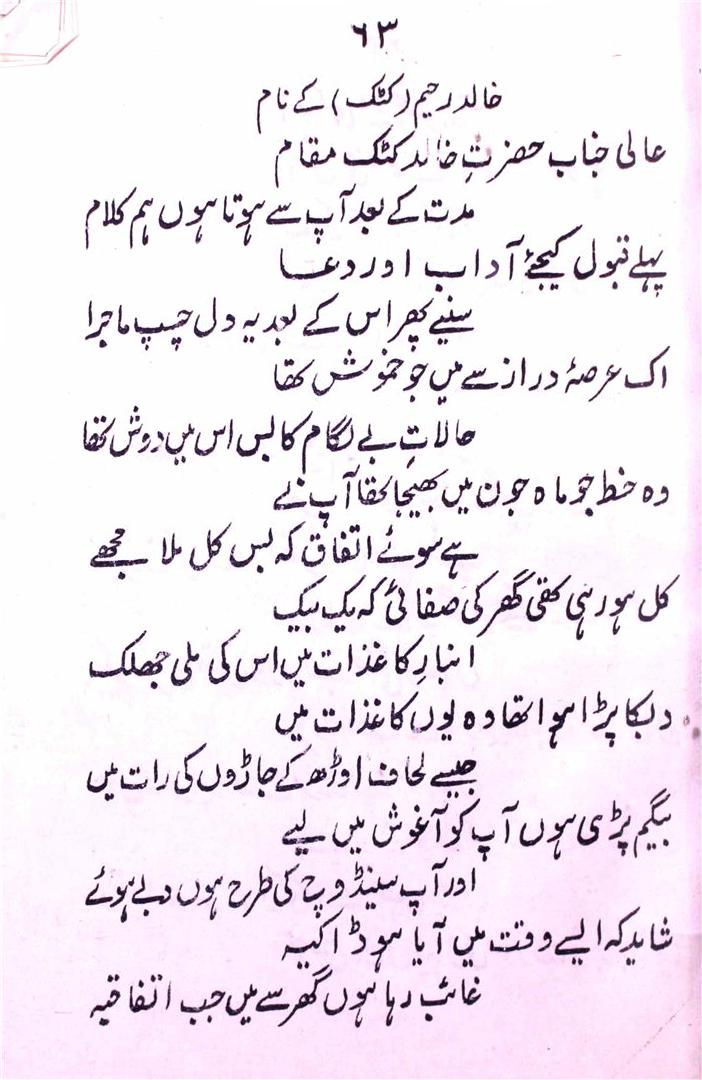 ۶۳
خالد رحیم (کٹک) کے نام
عالی جناب حضرتِ خالد کٹک مقام
مدت کے بعد آپ سے ہوتا ہوں ہم کلام
پہلے قبول کیجئے آداب اور دعا
سنیے پھر اس کے بعد یہ دل چسپ ماجرا
اک عرصۂ دراز سے میں جو خموش تھا
حالاتِ بے لگام کا بس اس میں دوش تھا
وہ خط جو ماہ جون میں بھیجا تھا آپ نے
ہے سوئے اتفاق کہ بس کل ملا مجھے
کل ہو رہی تھی گھر کی صفائی کہ یک بیک
انبارِ کاغذات میں اس کی ملی جھلک
دبکا پڑا ہوا تھا وہ یوں کاغذات میں
جیسے لحاف اوڑھ کے جاڑوں کی رات میں
بیگم پڑی ہوں آپ کو آغوش میں لیے
اور آپ سینڈوچ کی طرح ہوں دبے ہوئے
شاید کہ ایسے وقت میں آیا ہو ڈاکیہ
غائب رہا ہوں گھر سے میں جب اتفاقیہ